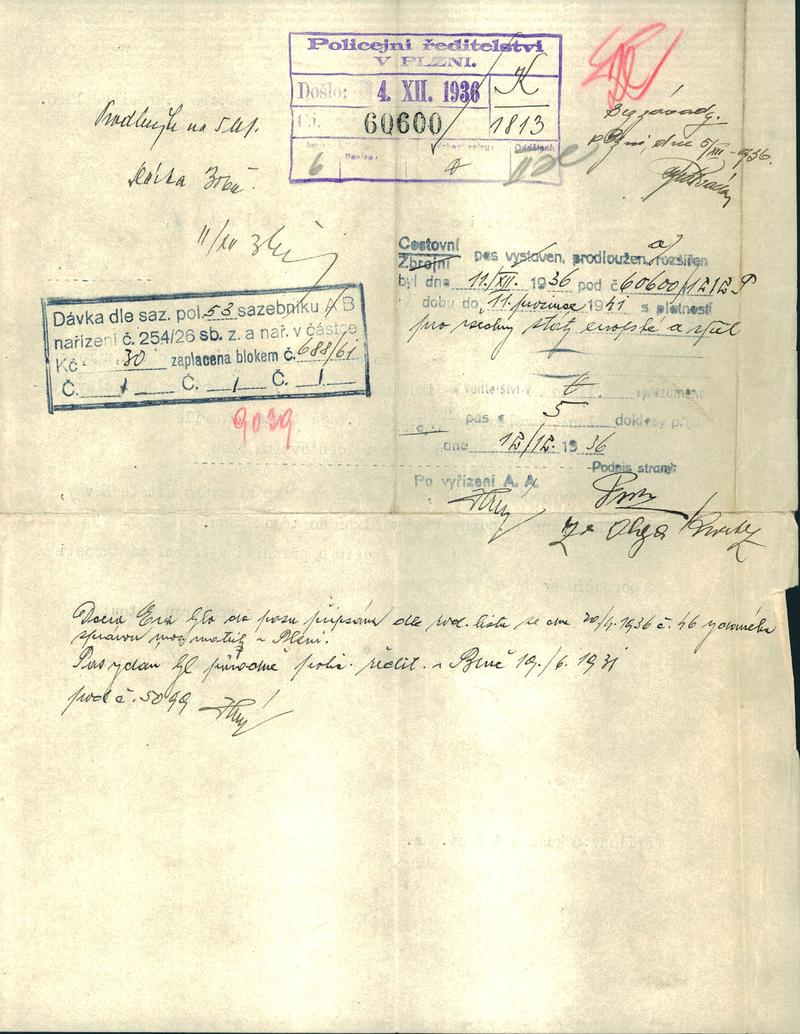 Policejní ředitelství
V PLZNI.
Došlo: 4. XII. 1936
K
60600
1813
6
Prodlužte na 5 let.
Bez závady.
dne 5/XII. 1936.
Cestovní
Zbrojní pas vystaven, prodloužen, a rozšířen
byl dne 11./XII. 1936 pod č. 60600/1212 P
dobu do 11. prosince 1941 s platností
pro všechny státy evropské a zpět
Dávka dle saz. pol. 53 sazebníku A B
nařízení č. 254/26 sb. z. a nař. v částce
Kč 30 zaplacena blokem č. 688/61
Č. / Č. / Č. /
9039
pas s 5 doklady
dne 12/12. 1936
Podpis strany:
Po vyřízení A. A.
Olga
Dcera Eva byla do pasu připsána dle rod. listu ze dne 20/4. 1936 č. 46 vydaného
správou matrik v Plzni.
Pas vydán byl původně polic. ředit. v Brně 19./6. 1931
pod č. 5099